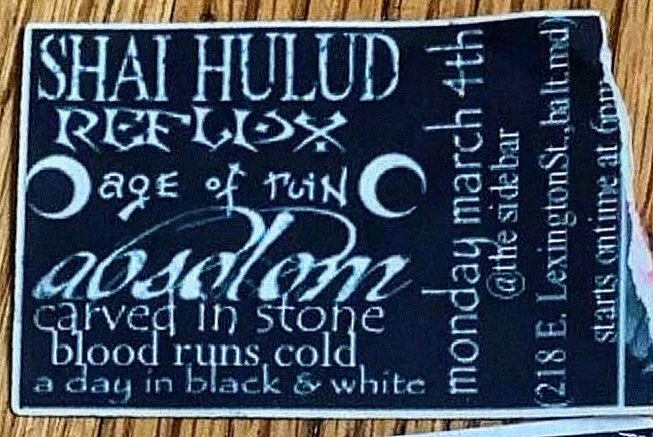 SHAI HULUD
REFLUX
age of ruin
absolom
carved in stone
blood runs cold
a day in black & white
monday march 4th
@the sidebar
(218 E. Lexington St., balt.md)
starts ontime at 6pm